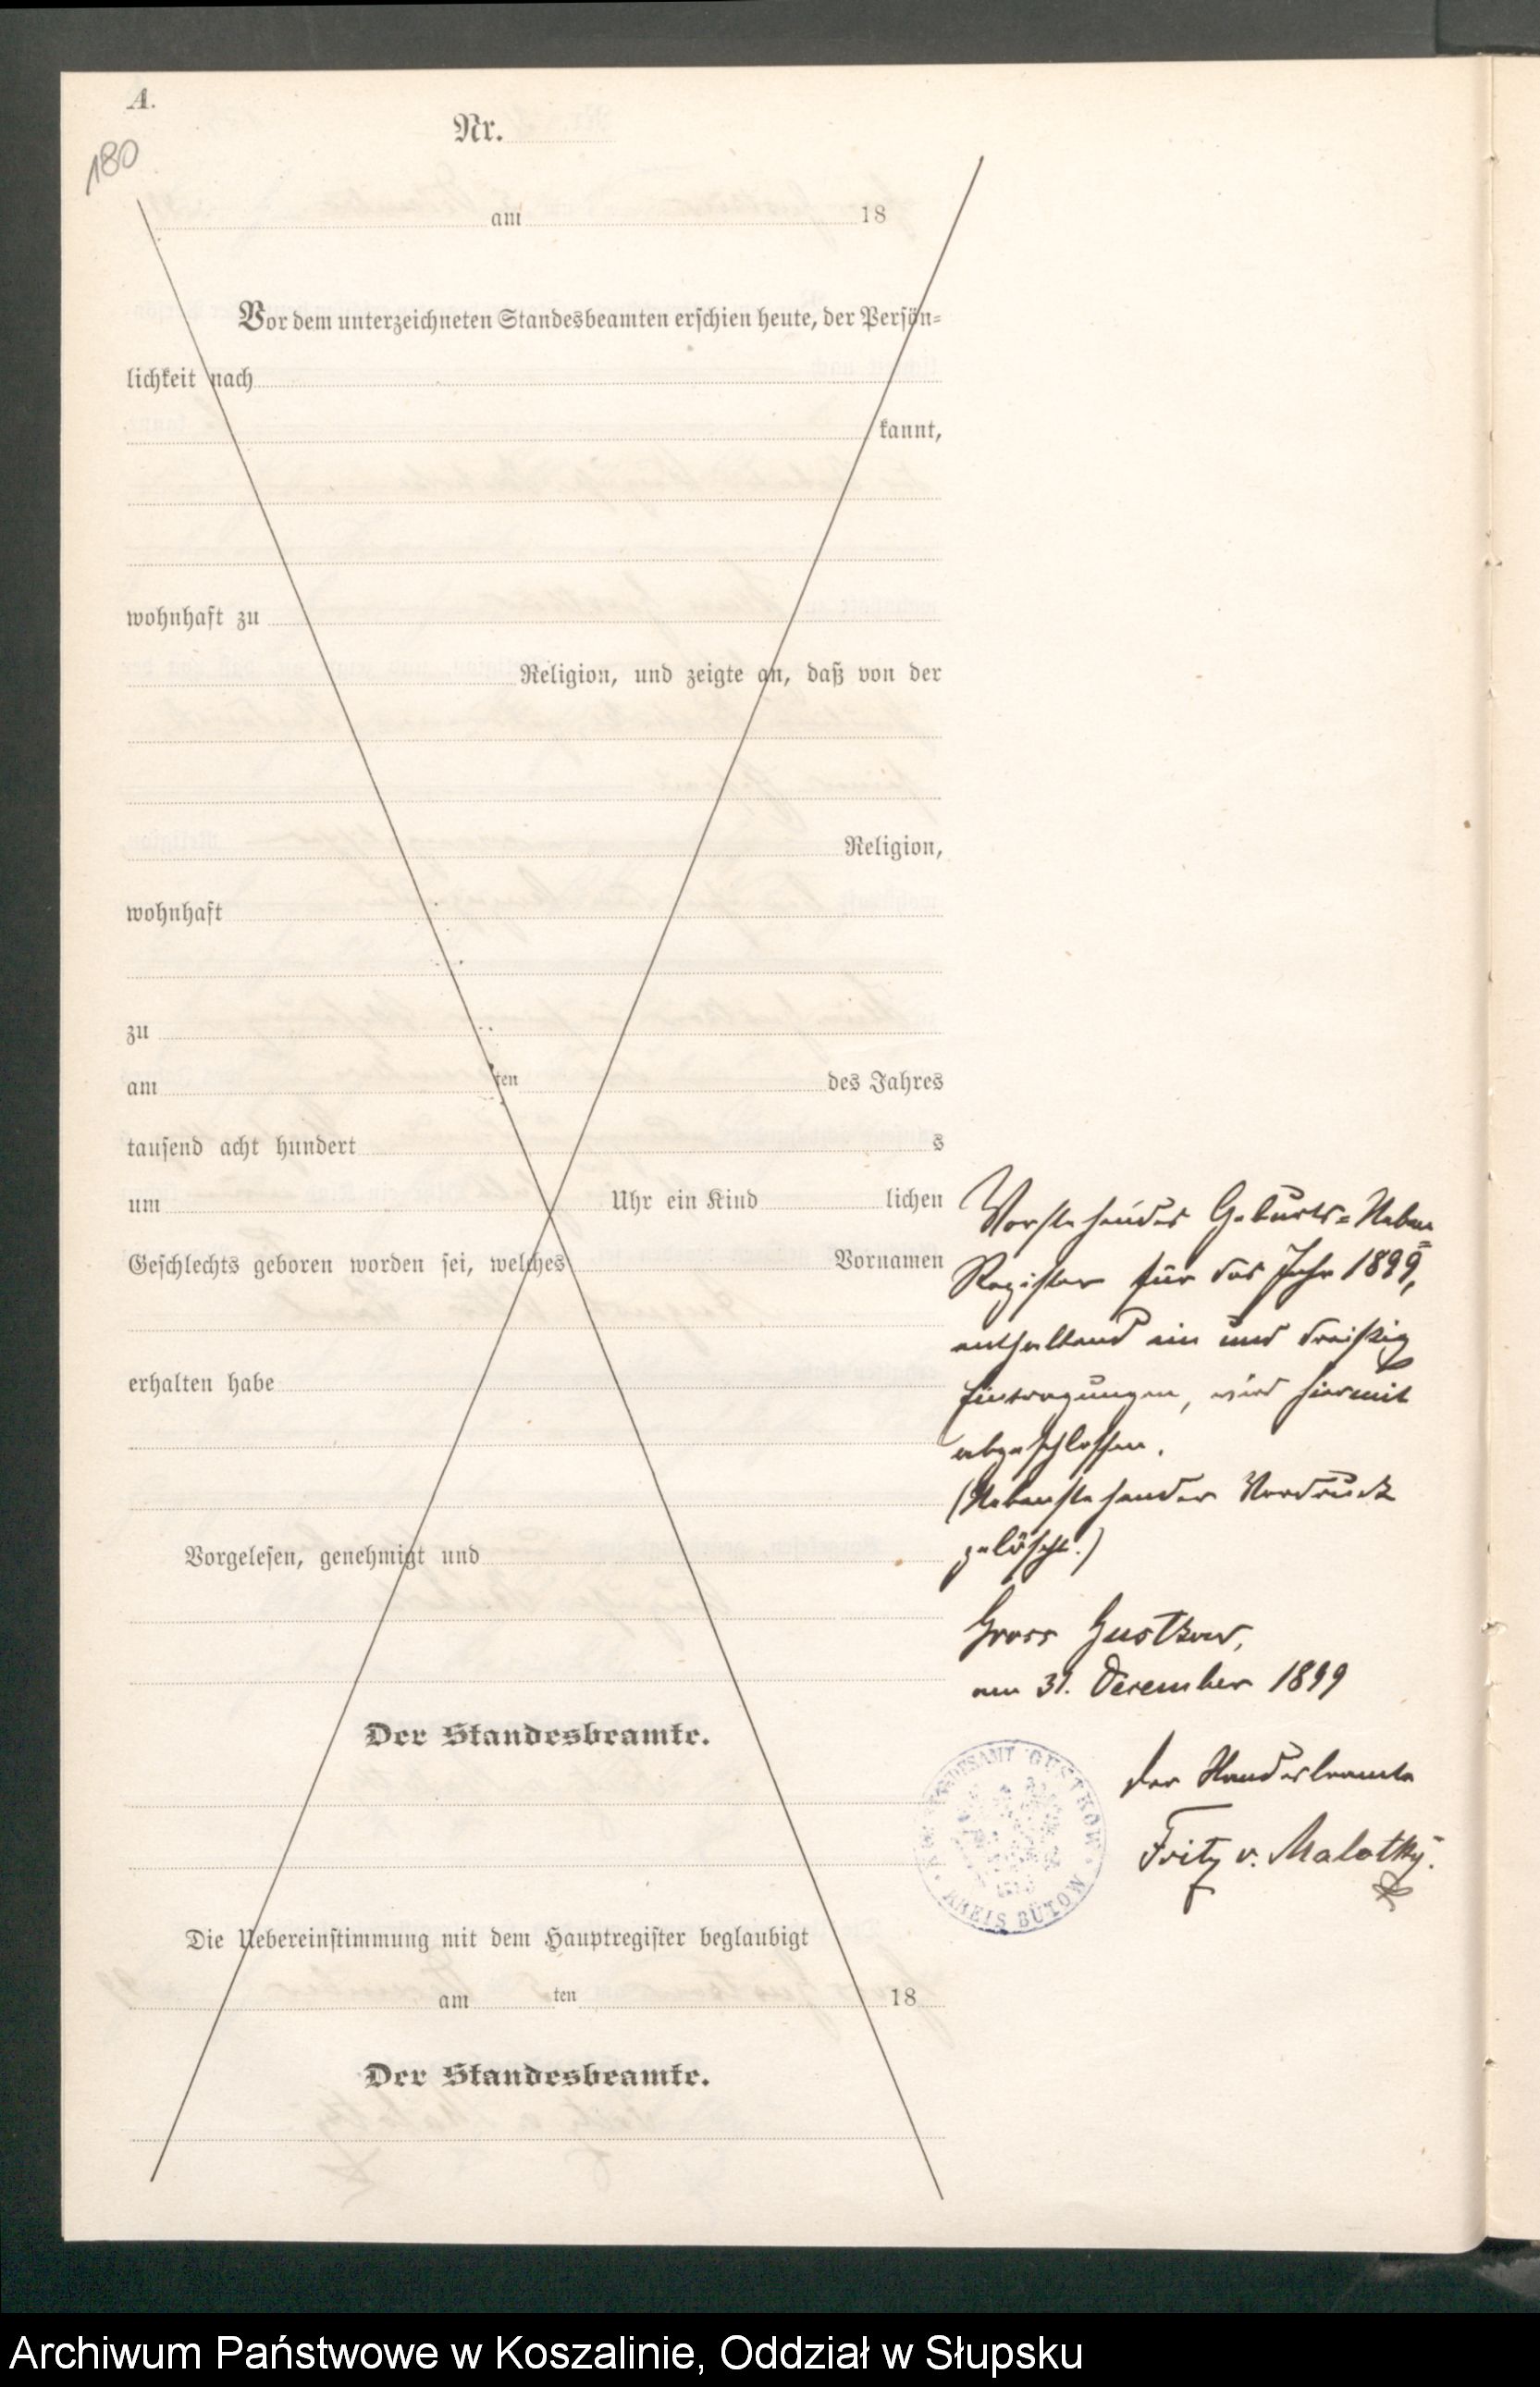 A.
180
Nr.
am 18
Vor dem unterzeichneten Standesbeamten erschien heute, der Persön-
lichkeit nach
kannt,
wohnhaft zu
Religion, und zeigte an, daß von der
Religion,
wohnhaft
zu
am ten des Jahres
tausend acht hundert s
um Uhr ein Kind lichen
Geschlechts geboren worden sei, welches Vornamen
erhalten habe
Vorgelesen, genehmigt und
Der Standesbeamte.
Die Uebereinstimmung mit dem Hauptregister beglaubigt
am ten 18
Der Standesbeamte.
Vorstehendes Geburts-Neben-
Register für das Jahr 1899,
enthaltend ein und dreißig
Eintragungen, wird hiermit
abgeschlossen.
(Nebenstehender Vordruck
gelöscht.)
Gross Gustkow,
am 31. December 1899
Der Standesbeamte
Fritz v. Malotky.
STANDESAMT GUSTKOW
KREIS BÜTOW
Archiwum Państwowe w Koszalinie, Oddział w Słupsku